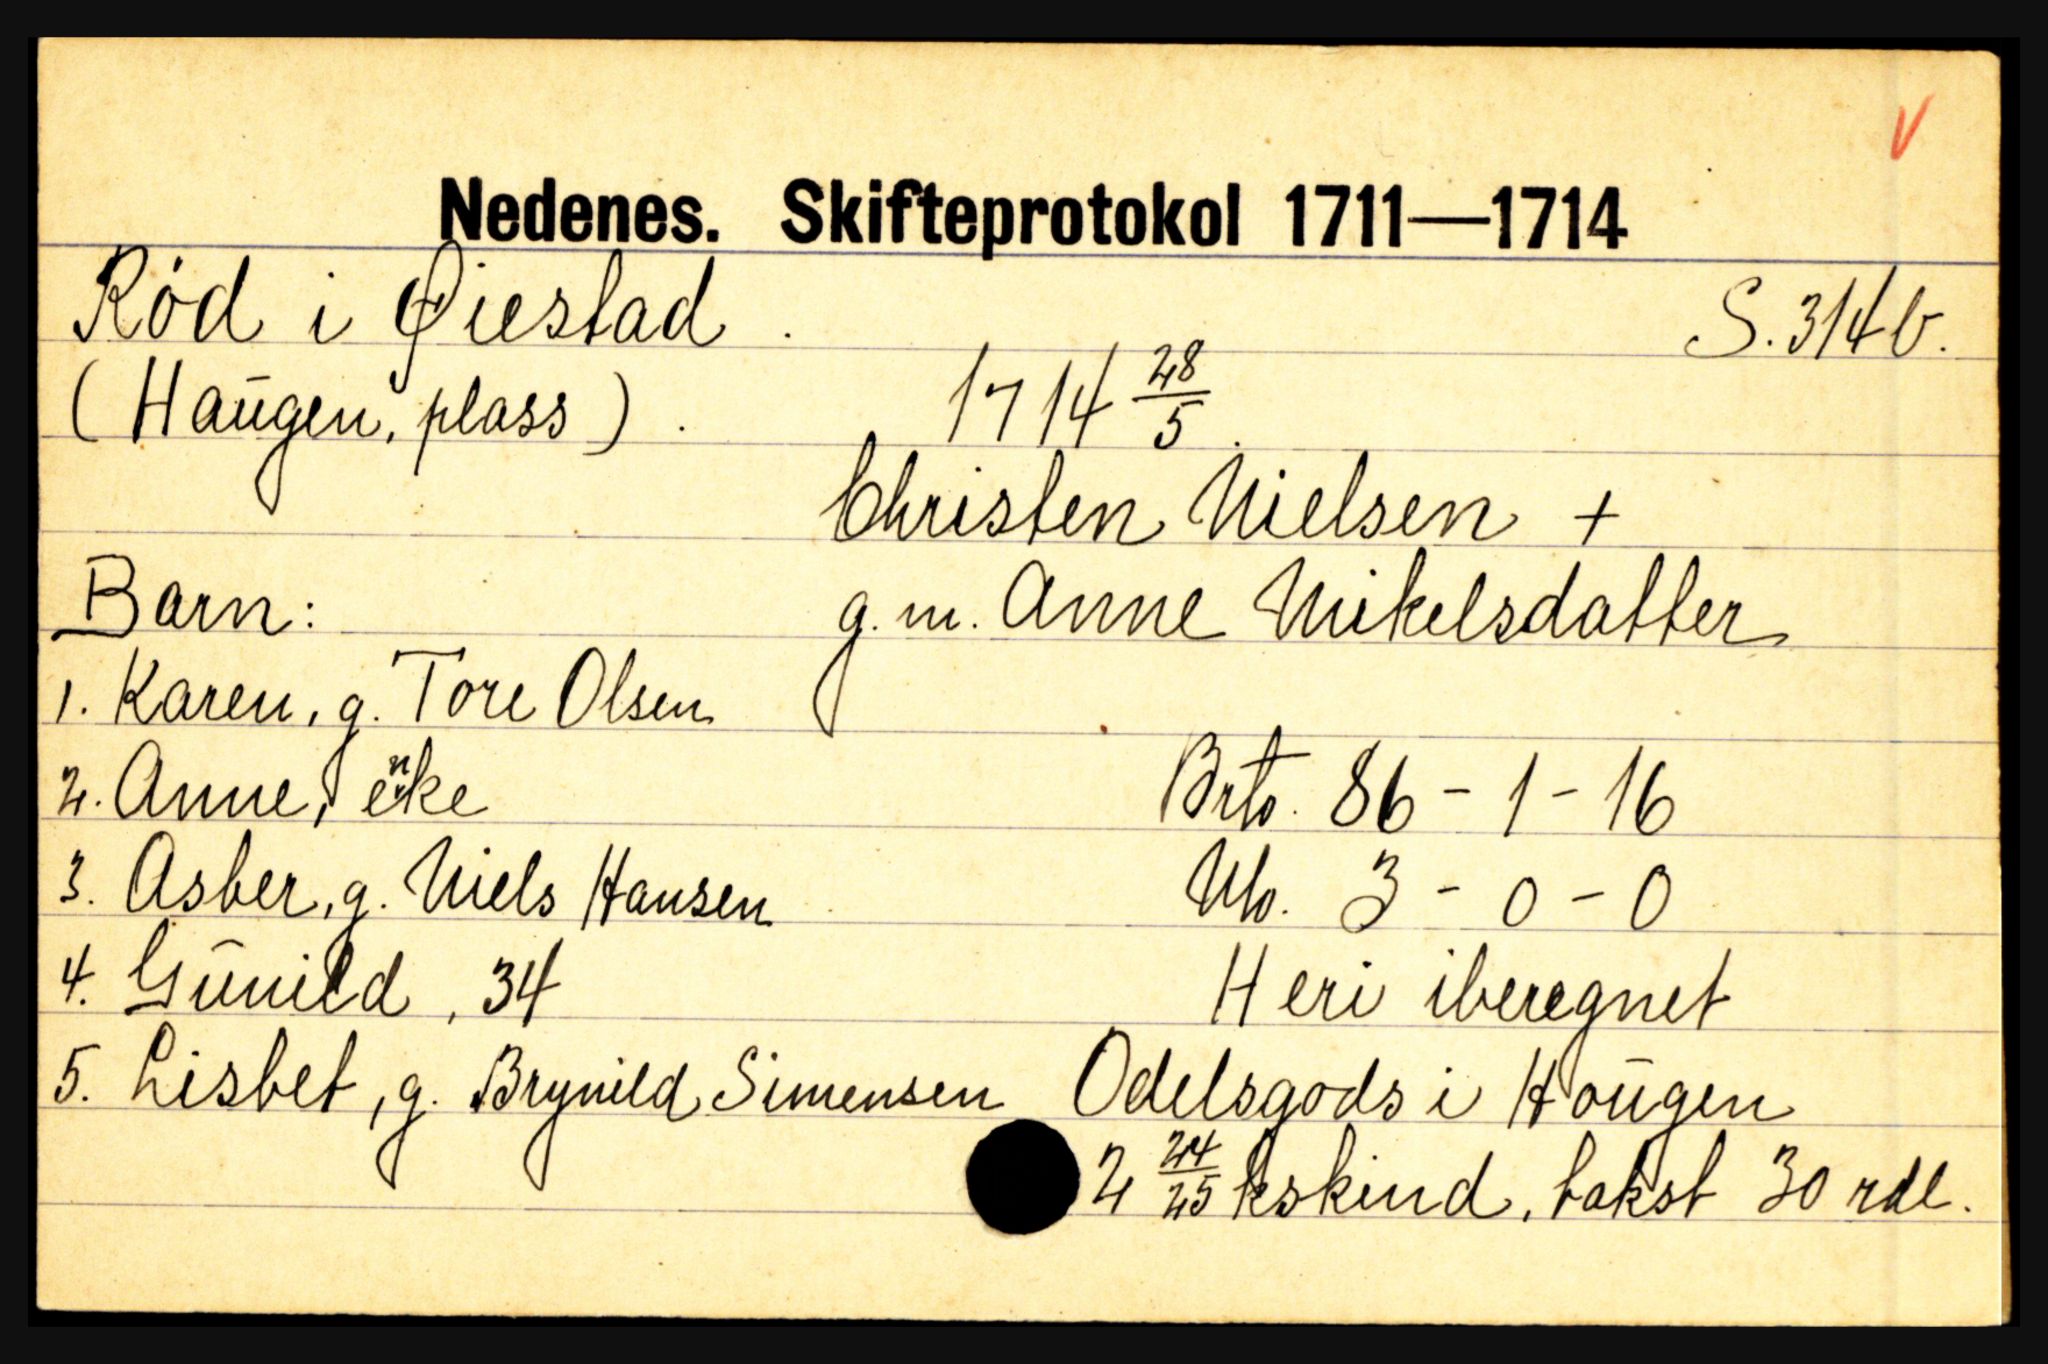 V
Nedenes. Skifteprotokol 1711—1714
Röd i Øiestad. S. 314b.
(Haŭgen, plass). 1714 28/5.
Christen Nielsen +
Barn: g. m. Anne Mikelsdatter
1. Karen, g. Tore Olsen
2. Anne, enke Brto. 86 - 1 - 16
3. Asber, g. Niels Hansen Nto. 3 - 0 - 0
4. Gŭnild, 34 Heri iberegnet
5. Lisbet, g. Brynild Simensen Odelsgods i Hoŭgen
2 24/25 kskind, takst 30 rdl.